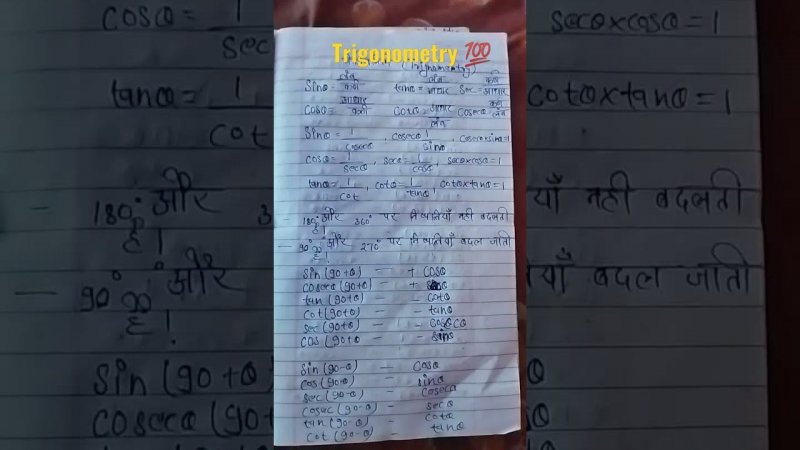 Trigonometry 💯
(Trigonometry)
sinθ = लंब/कर्ण tanθ = लंब/आधार sec = कर्ण/आधार
cosθ = आधार/कर्ण cotθ = आधार/लंब cosecθ कर्ण/लंब
sinθ = 1/cosecθ , cosecθ 1/sinθ , cosecθ×sinθ=1
cosθ = 1/secθ , secθ = 1/cosθ , secθ×cosθ=1
tanθ = 1/cot , cotθ = 1/tanθ , cotθ×tanθ=1
– 180° और 360° पर निष्पत्तियाँ नहीं बदलती
है।
– 90° और 270° पर निष्पत्तियाँ बदल जाती
है।
sin(90+θ) – + cosθ
cosecθ(90+θ) – +
tan(90+θ) – – cotθ
cot(90+θ) – – tanθ
sec(90+θ) – – cosecθ
cos(90+θ – – sinθ
sin(90-θ) – cosθ
cos(90-θ) – sinθ
sec(90-θ) – cosecθ
cosec(90-θ) – secθ
tan(90-θ) – cotθ
cot(90-θ) – tanθ